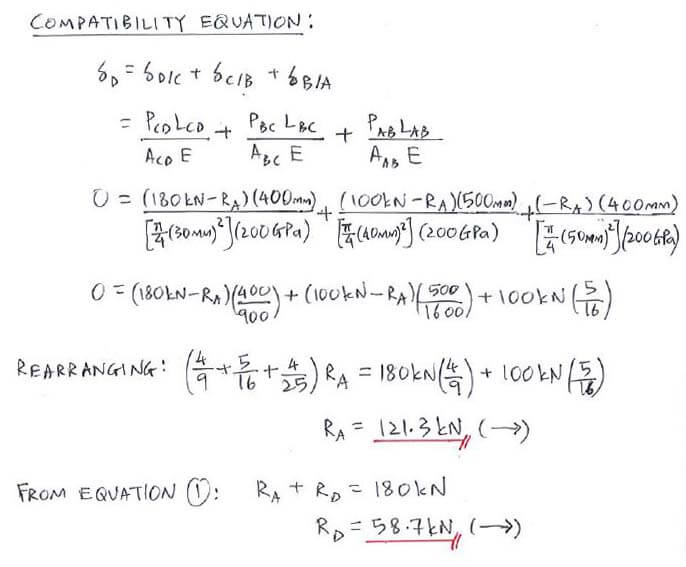 COMPATIBILITY EQUATION:
δ_D = δ_D/C + δ_C/B + δ_B/A
= P_CD L_CD / A_CD E + P_BC L_BC / A_BC E + P_AB L_AB / A_AB E
0 = (180kN-R_A)(400mm) / [π/4 (30mm)²](200GPa) + (100kN-R_A)(500mm) / [π/4 (40mm)²](200GPa) + (-R_A)(400mm) / [π/4 (50mm)²](200GPa)
0 = (180kN-R_A)(400/900) + (100kN-R_A)(500/1600) + 100kN(5/16)
REARRANGING: (4/9 + 5/16 + 4/25) R_A = 180kN(4/9) + 100kN(5/16)
R_A = 121.3kN (→)
FROM EQUATION ①: R_A + R_D = 180kN
R_D = 58.7kN (→)